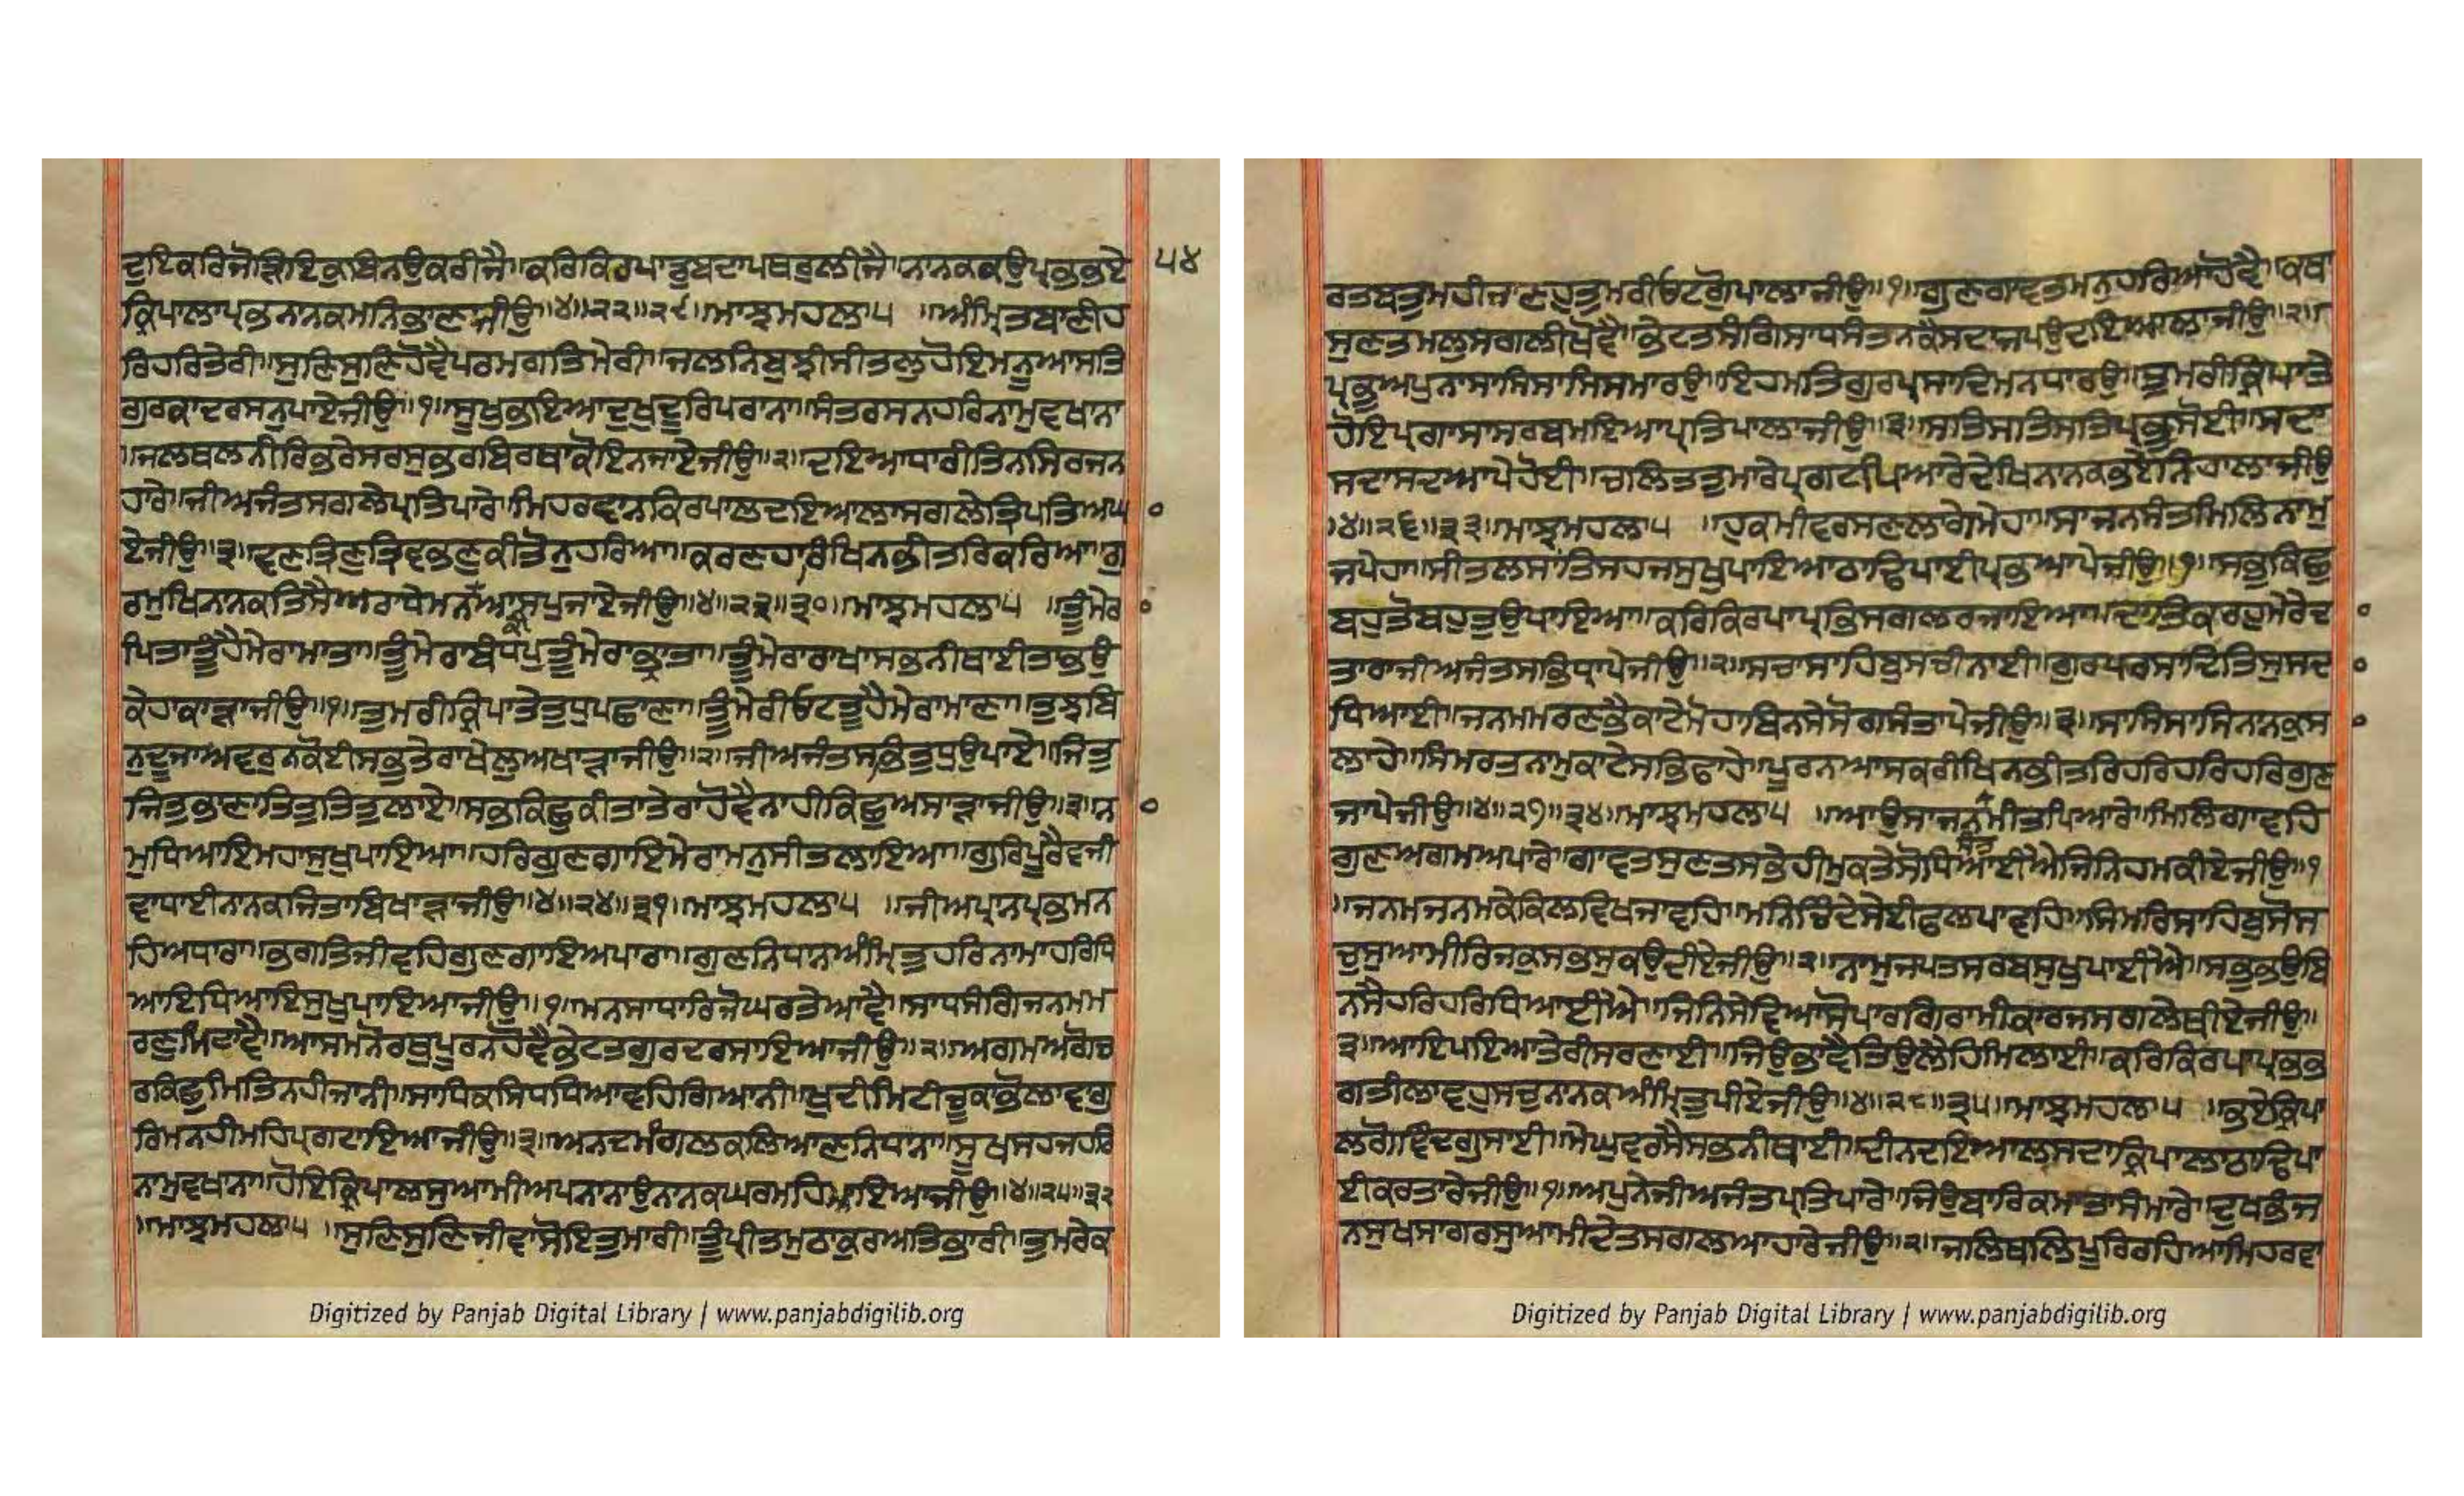 ਦੁਇਕਰਿਜੋੜਿਇਕੁਬਿਨਉਕਰੀਜੈ॥ਕਰਿਕਿਰਪਾਡੁਬਦਾਪਥਰੁਲੀਜੈ॥ਨਾਨਕਕਉਪ੍ਰਭਭਏ
੫੪
ਕ੍ਰਿਪਾਲਾਪ੍ਰਭਨਾਨਕਮਨਿਭਾਣਾਜੀਉ॥੪॥੨੨॥੨੯॥ਮਾਝਮਹਲਾ੫ ॥ਅੰਮ੍ਰਿਤਬਾਣੀਹ
ਰਿਹਰਿਤੇਰੀ॥ਸੁਣਿਸੁਣਿਹੋਵੈਪਰਮਗਤਿਮੇਰੀ॥ਜਲਨਿਬੁਝੀਸੀਤਲੁਹੋਇਮਨੂਆਸਤਿ
ਗੁਰਕਾਦਰਸਨੁਪਾਏਜੀਉ॥੧॥ਸੂਖੁਭਇਆਦੁਖੁਦੂਰਿਪਰਾਨਾ॥ਸੰਤਰਸਨਹਰਿਨਾਮੁਵਖਾਨਾ
॥ਜਲਥਲਨੀਰਿਭਰੇਸਰਸੁਭਰਬਿਰਥਾਕੋਇਨਜਾਏਜੀਉ॥੨॥ਦਇਆਧਾਰੀਤਿਨਸਿਰਜਨ
ਹਾਰੇ॥ਜੀਅਜੰਤਸਗਲੇਪ੍ਰਤਿਪਾਰੇ॥ਮਿਹਰਵਾਨਕਿਰਪਾਲਦਇਆਲਾਸਗਲੇਤ੍ਰਿਪਤਿਅਘਾ
ਏਜੀਉ॥੩॥ਵਣੁਤ੍ਰਿਣੁਤ੍ਰਿਭਵਣੁਕੀਤੋਨੁਹਰਿਆ॥ਕਰਣਹਾਰਿਖਿਨਭੀਤਰਿਕਰਿਆ॥ਗੁ
ਰਮੁਖਿਨਾਨਕਤਿਸੈਅਰਾਧੇਮਨਕੀਆਸਪੁਜਾਏਜੀਉ॥੪॥੨੩॥੩੦॥ਮਾਝਮਹਲਾ੫ ॥ਤੂੰਮੇਰਾ
ਪਿਤਾਤੂੰਹੈਮੇਰਾਮਾਤਾ॥ਤੂੰਮੇਰਾਬੰਧਪੁਤੂੰਮੇਰਾਭ੍ਰਾਤਾ॥ਤੂੰਮੇਰਾਰਾਖਾਸਭਨੀਥਾਈਤਾਭਉ
ਕੇਹਾਕਾੜਾਜੀਉ॥੧॥ਤੁਮਰੀਕ੍ਰਿਪਾਤੇਤੁਧੁਪਛਾਣਾ॥ਤੂੰਮੇਰੀਓਟਤੂੰਹੈਮੇਰਾਮਾਣਾ॥ਤੁਝਬਿ
ਨੁਦੂਜਾਅਵਰੁਨਕੋਈਸਭੁਤੇਰਾਖੇਲੁਅਖਾੜਾਜੀਉ॥੨॥ਜੀਅਜੰਤਸਭਿਤੁਧੁਉਪਾਏ॥ਜਿਤੁ
ਜਿਤੁਭਾਣਾਤਿਤੁਤਿਤੁਲਾਏ॥ਸਭਕਿਛੁਕੀਤਾਤੇਰਾਹੋਵੈਨਾਹੀਕਿਛੁਅਸਾੜਾਜੀਉ॥੩॥ਨਾ
ਮੁਧਿਆਇਮਹਾਸੁਖੁਪਾਇਆ॥ਹਰਿਗੁਣਗਾਇਮੇਰਾਮਨੁਸੀਤਲਾਇਆ॥ਗੁਰਿਪੂਰੈਵਜੀ
ਵਾਧਾਈਨਾਨਕਜਿਤਾਬਿਖਾੜਾਜੀਉ॥੪॥੨੪॥੩੧॥ਮਾਝਮਹਲਾ੫ ॥ਜੀਅਪ੍ਰਾਨਪ੍ਰਭਮਨ
ਹਿਅਧਾਰਾ॥ਭਗਤਿਜੀਵਹਿਗੁਣਗਾਇਅਪਾਰਾ॥ਗੁਣਨਿਧਾਨਅੰਮ੍ਰਿਤੁਹਰਿਨਾਮਾਹਰਿਧਿ
ਆਇਧਿਆਇਸੁਖੁਪਾਇਆਜੀਉ॥੧॥ਮਨਸਾਧਾਰਿਜੋਘਰਤੇਆਵੈ॥ਸਾਧਸੰਗਿਜਨਮਮ
ਰਣੁਮਿਟਾਵੈ॥ਆਸਮਨੋਰਥੁਪੂਰਨਹੋਵੈਭੇਟਤਗੁਰਦਰਸਾਇਆਜੀਉ॥੨॥ਅਗਮਅਗੋਚ
ਰਕਿਛੁਮਿਤਿਨਹੀਜਾਨੀ॥ਸਾਧਿਕਸਿਧਧਿਆਵਹਿਗਿਆਨੀ॥ਖੁਦੀਮਿਟੀਚੂਕਾਭੋਲਾਵਾਗੁ
ਰਿਮਨਹੀਮਹਿਪ੍ਰਗਟਾਇਆਜੀਉ॥੩॥ਅਨਦਮੰਗਲਕਲਿਆਣਨਿਧਾਨਾ॥ਸੂਖਸਹਜਹਰਿ
ਨਾਮੁਵਖਾਨਾ॥ਹੋਇਕ੍ਰਿਪਾਲਸੁਆਮੀਅਪਨਾਨਾਉਨਾਨਕਘਰਮਹਿਆਇਆਜੀਉ॥੪॥੨੫॥੩੨
॥ਮਾਝਮਹਲਾ੫ ॥ਸੁਣਿਸੁਣਿਜੀਵਾਸੋਇਤੁਮਾਰੀ॥ਤੂੰਪ੍ਰੀਤਮੁਠਾਕੁਰਅਤਿਭਾਰੀ॥ਤੁਮਰੇਕ
Digitized by Panjab Digital Library | www.panjabdigilib.org
ਰਤਬਤੁਮਹੀਜਾਣਹੁਤੁਮਰੀਓਟਗੋਪਾਲਾਜੀਉ॥੧॥ਗੁਣਗਾਵਤਮਨੁਹਰਿਆਹੋਵੈ॥ਕਥਾ
ਸੁਣਤਮਲੁਸਗਲੀਖੋਵੈ॥ਭੇਟਤਸੰਗਿਸਾਧਸੰਤਨਕੈਸਦਾਜਪਉਦਇਆਲਾਜੀਉ॥੨॥
ਪ੍ਰਭੁਅਪੁਨਾਸਾਸਿਸਾਸਿਸਮਾਰਉ॥ਇਹਮਤਿਗੁਰਪ੍ਰਸਾਦਿਮਨਿਧਾਰਉ॥ਤੁਮਰੀਕ੍ਰਿਪਾਤੇ
ਹੋਇਪ੍ਰਗਾਸਾਸਰਬਮਇਆਪ੍ਰਤਿਪਾਲਾਜੀਉ॥੩॥ਸਤਿਸਤਿਸਤਿਪ੍ਰਭੁਸੋਈ॥ਸਦਾ
ਸਦਾਸਦਆਪੇਹੋਈ॥ਚਲਿਤਤੁਮਾਰੇਪ੍ਰਗਟਪਿਆਰੇਦੇਖਿਨਾਨਕਭਏਨਿਹਾਲਾਜੀਉ
॥੪॥੨੬॥੩੩॥ਮਾਝਮਹਲਾ੫ ॥ਹੁਕਮੀਵਰਸਣਲਾਗੇਮੇਹਾ॥ਸਾਜਨਸੰਤਮਿਲਿਨਾਮੁ
ਜਪੇਹਾ॥ਸੀਤਲਸਾਂਤਿਸਹਜਸੁਖੁਪਾਇਆਠਾਢਿਪਾਈਪ੍ਰਭਆਪੇਜੀਉ॥੧॥ਸਭੁਕਿਛੁ
ਬਹੁਤੋਬਹੁਤੁਉਪਾਇਆ॥ਕਰਿਕਿਰਪਾਪ੍ਰਭਿਸਗਲਰਜਾਇਆ॥ਦਾਤਿਕਰਹੁਮੇਰੈਦਾ
ਤਾਰਾਜੀਅਜੰਤਸਭਿਧ੍ਰਾਪੇਜੀਉ॥੨॥ਸਚਾਸਾਹਿਬੁਸਚੀਨਾਈ॥ਗੁਰਪਰਸਾਦਿਤਿਸੁਸਦਾ
ਧਿਆਈ॥ਜਨਮਮਰਣਭੈਕਾਟੇਮੋਹਾਬਿਨਸੇਸੋਗਸੰਤਾਪੇਜੀਉ॥੩॥ਸਾਸਿਸਾਸਿਨਾਨਕੁਸਾ
ਲਾਹੇ॥ਸਿਮਰਤਨਾਮੁਕਾਟੇਸਭਿਫਾਹੇ॥ਪੂਰਨਆਸਕਰੀਖਿਨਭੀਤਰਿਹਰਿਹਰਿਹਰਿਗੁਣ
ਜਾਪੇਜੀਉ॥੪॥੨੭॥੩੪॥ਮਾਝਮਹਲਾ੫ ॥ਆਉਸਾਜਨਸੰਤਮੀਤਪਿਆਰੇ॥ਮਿਲਿਗਾਵਹਿ
ਗੁਣਅਗਮਅਪਾਰੇ॥ਗਾਵਤਸੁਣਤਸਭੇਹੀਮੁਕਤੇਸੋਧਿਆਈਐਜਿਨਿਹਮਕੀਏਜੀਉ॥੧
॥ਜਨਮਜਨਮਕੇਕਿਲਵਿਖਜਾਵਹਿ॥ਮਨਿਚਿੰਦੇਸੇਈਫਲਪਾਵਹਿ॥ਸਿਮਰਿਸਾਹਿਬੁਸੋਸ
ਚੁਸੁਆਮੀਰਿਜਕੁਸਭਸੁਕਉਦੀਏਜੀਉ॥੨॥ਨਾਮੁਜਪਤਸਰਬਸੁਖੁਪਾਈਐ॥ਸਭੁਭਉਬਿ
ਨਸੈਹਰਿਹਰਿਧਿਆਈਐ॥ਜਿਨਿਸੇਵਿਆਸੋਪਾਰਗਿਰਾਮੀਕਾਰਜਸਗਲੇਥੀਏਜੀਉ॥
੩॥ਆਇਪਇਆਤੇਰੀਸਰਣਾਈ॥ਜਿਉਭਾਵੈਤਿਉਲੈਹਿਮਿਲਾਈ॥ਕਰਿਕਿਰਪਾਪ੍ਰਭਭ
ਗਤੀਲਾਵਹੁਸਚੁਨਾਨਕਅੰਮ੍ਰਿਤੁਪੀਏਜੀਉ॥੪॥੨੮॥੩੫॥ਮਾਝਮਹਲਾ੫ ॥ਭਏਕ੍ਰਿਪਾ
ਲਗੋਵਿੰਦਗੁਸਾਈ॥ਮੇਘੁਵਰਸੈਸਭਨੀਥਾਈ॥ਦੀਨਦਇਆਲਸਦਾਕ੍ਰਿਪਾਲਾਠਾਢਿਪਾ
ਈਕਰਤਾਰੇਜੀਉ॥੧॥ਅਪੁਨੇਜੀਅਜੰਤਪ੍ਰਤਿਪਾਰੇ॥ਜਿਉਬਾਰਿਕਮਾਤਾਸੰਮਾਰੇ॥ਦੁਖਭੰਜ
ਨਸੁਖਸਾਗਰਸੁਆਮੀਦੇਤਸਗਲਆਹਾਰੇਜੀਉ॥੨॥ਜਲਿਥਲਿਪੂਰਿਰਹਿਆਮਿਹਰਵਾ
Digitized by Panjab Digital Library | www.panjabdigilib.org